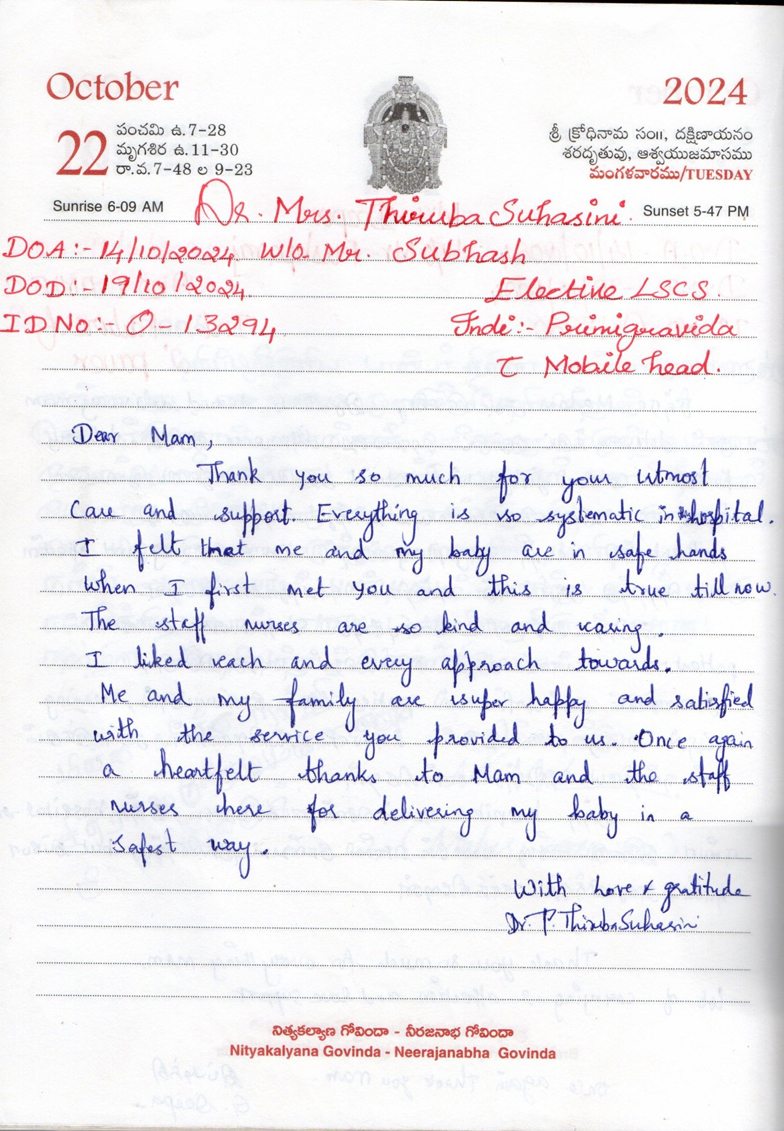 October
2024
22
పంచమి ఉ.7-28
మృగశిర ఉ.11-30
రా.వ.7-48 ల 9-23
శ్రీ క్రోధినామ సం॥, దక్షిణాయనం
శరదృతువు, ఆశ్వయుజమాసము
మంగళవారము/TUESDAY
Sunrise 6-09 AM
Sunset 5-47 PM
Dr. Mrs. Thiruba Suhasini.
DOA:- 14/10/2024. W/o. Mr. Subhash
DOD:- 19/10/2024.
Elective LSCS.
ID No:- O-13294
Indi:- Primigravida
c Mobile head.
Dear Mam,
Thank you so much for your utmost
care and support. Everything is so systematic in hospital.
I felt that me and my baby are in safe hands
when I first met you and this is true till now.
The staff nurses are so kind and caring.
I liked each and every approach towards.
Me and my family are super happy and satisfied
with the service you provided to us. Once again
a heartfelt thanks to Mam and the staff
nurses here for delivering my baby in a
safest way.
With love & gratitude
Dr. P. Thiruba Suhasini
నిత్యకల్యాణ గోవిందా - నీరజనాభ గోవిందా
Nityakalyana Govinda - Neerajanabha Govinda